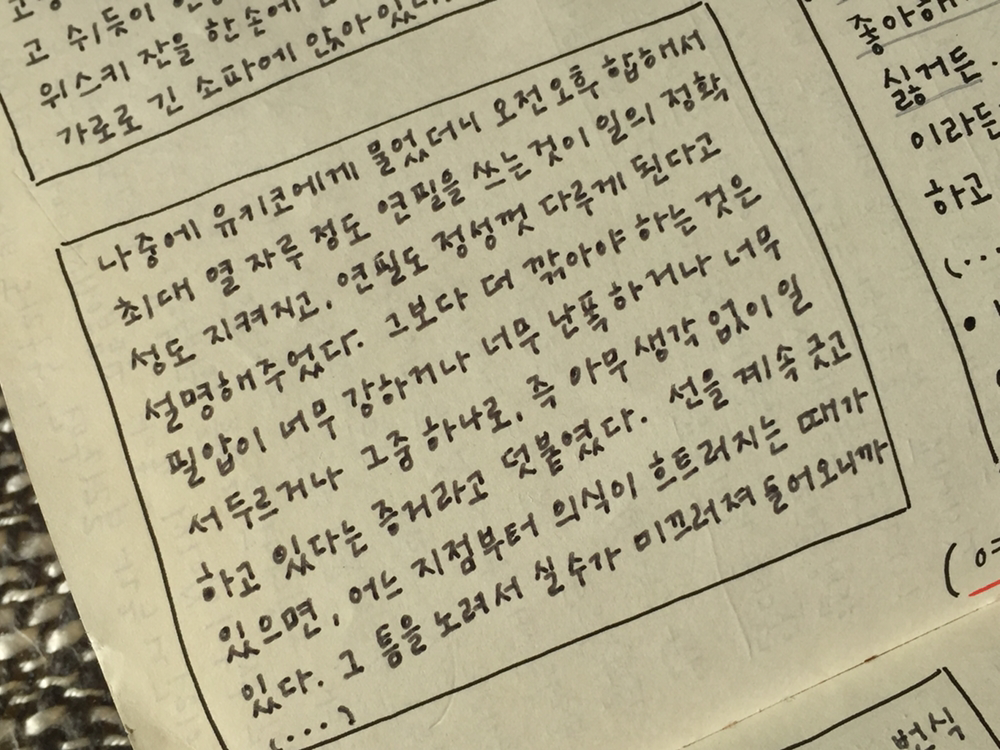 고 쉬듯이
위스키 잔을 한손에
가로로 긴 소파에 앉아 있
나중에 유키코에게 물었더니 오전오후 합해서
최대 열 자루 정도 연필을 쓰는 것이 일의 정확
성도 지켜지고, 연필도 정성껏 다루게 된다고
설명해주었다. 그보다 더 깎아야 하는 것은
필압이 너무 강하거나 너무 난폭하거나 너무
서두르거나 그중 하나로, 즉 아무 생각 없이 일
하고 있다는 증거라고 덧붙였다. 선을 계속 긋고
있으면, 어느 지점부터 의식이 흐트러지는 때가
있다. 그 틈을 노려서 실수가 미끄러져 들어오니까
(...)
좋아해
싫거든.
이라든
하고
(...